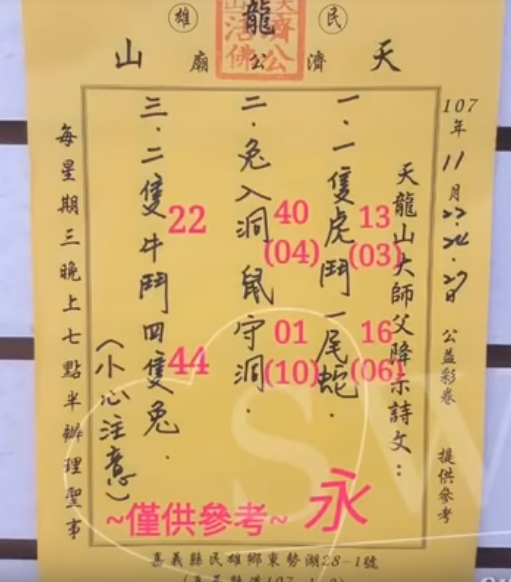 民雄
天濟公廟山
龍
濟公活佛
107年11月22.24.27日 公益彩卷 提供參考
天龍山大師父降示詩文：
一.一隻虎鬥一尾蛇.
13
(03)
16
(06)
二.兔入洞鼠守洞.
40
(04)
01
(10)
三.二隻牛鬥四隻兔.
22
44
(小心注意)
每星期三晚上七點半辦理聖事
~僅供參考~ 永
嘉義縣民雄鄉東勢湖28-1號
SW